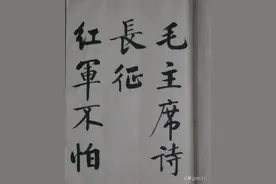 毛主席诗
長征
红軍不怕